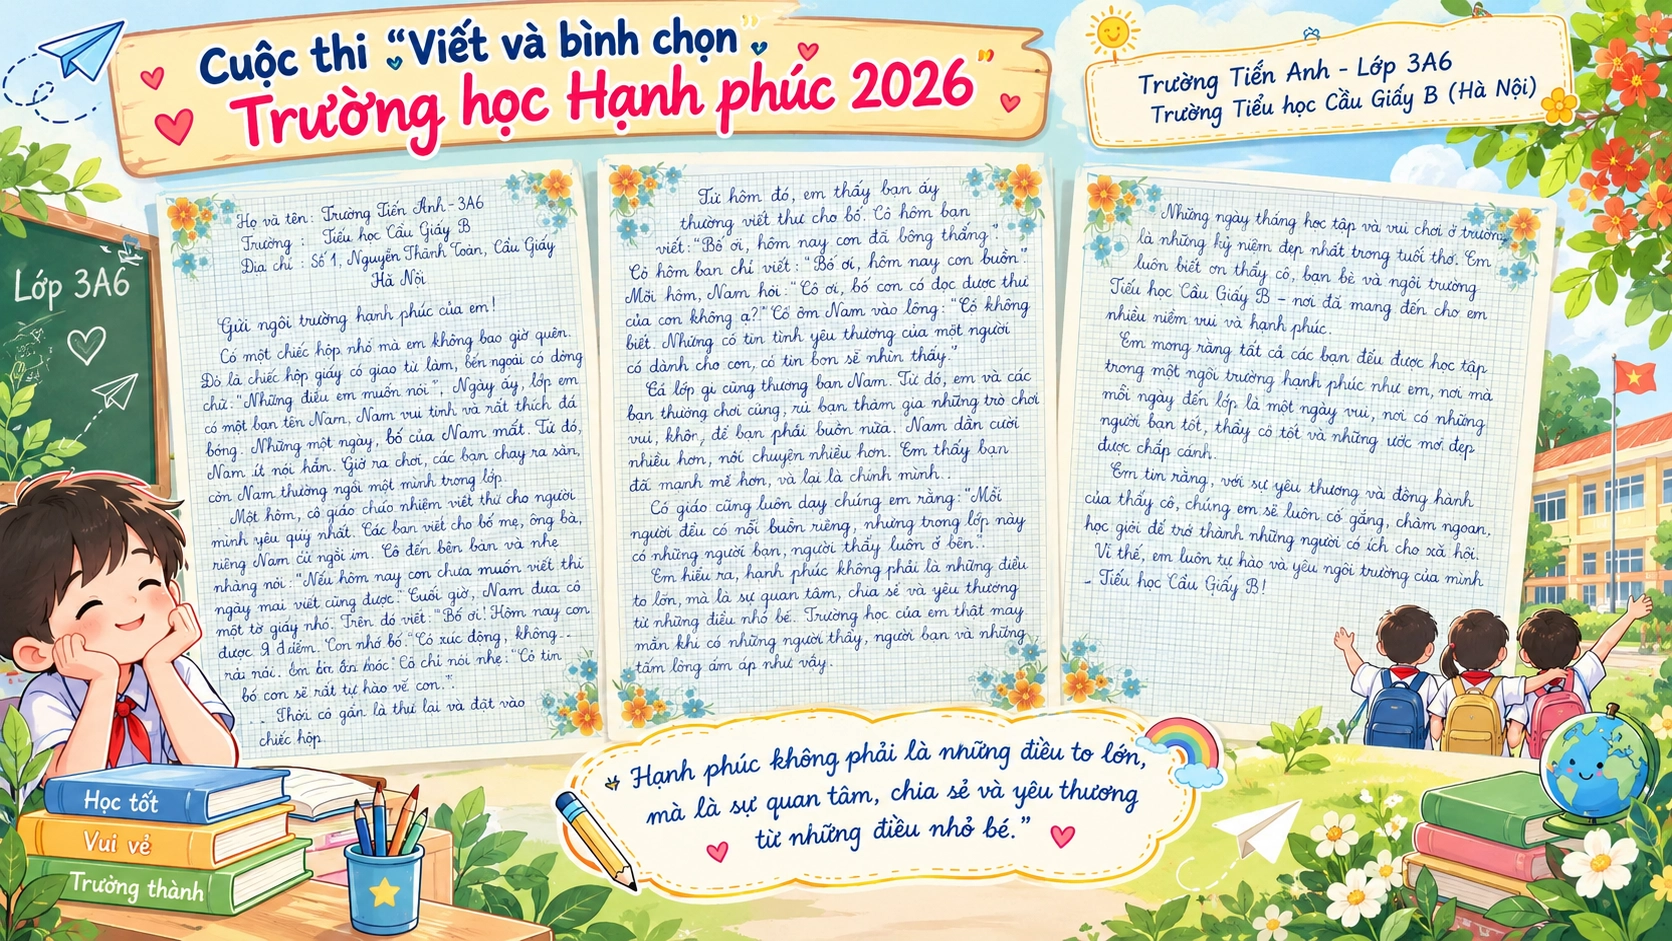 Cuộc thi “Viết và bình chọn”
Trường học Hạnh phúc 2026”
Trường Tiến Anh - Lớp 3A6
Trường Tiểu học Cầu Giấy B (Hà Nội)
Lớp 3A6
Họ và tên: Trường Tiến Anh - 3A6
Trường : Tiểu học Cầu Giấy B
Địa chỉ : Số 1, Nguyễn Thành Toàn, Cầu Giấy
Hà Nội
Gửi ngôi trường hạnh phúc của em!
Có một chiếc hộp nhỏ mà em không bao giờ quên.
Đó là chiếc hộp giấy cô giao từ làm, bên ngoài có dòng
chữ: “Những điều em muốn nói”, Ngày ấy, lớp em
có một bạn tên Nam, Nam vui tính và rất thích đá
bóng. Nhưng một ngày, bố của Nam mất. Từ đó,
Nam ít nói hẳn. Giờ ra chơi, các bạn chạy ra sân,
còn Nam thường ngồi một mình trong lớp.
Một hôm, cô giáo nhiệm viết thư cho người
mình yêu quý nhất. Các bạn viết cho bố mẹ, ông bà,
riêng Nam cứ ngồi im. Cô đến bên bàn và nhẹ
nhàng nói: “Nếu hôm nay con chưa muốn viết thì
ngày mai viết cũng được.” Cuối giờ, Nam đưa cô
một tờ giấy nhỏ. Trên đó viết: “Bố ơi! Hôm nay con
được 9 điểm. Con nhớ bố.” Cô xúc động, không..
nói. Em Cô chỉ nói nhẹ: “Cô tin
bố con sẽ rất tự hào về con.”.
.. Thời cô gần lá thư lại và đặt vào
chiếc hộp.
Từ hôm đó, em thấy bạn ấy
thường viết thư cho bố. Có hôm bạn
viết: “Bố ơi, hôm nay con đã bông thắng”
Có hôm bạn chỉ viết: “Bố ơi, hôm nay con buồn”.
Mỗi hôm, Nam hỏi: “Cô ơi, bố con có đọc được thư
của con không ạ?” Cô ôm Nam vào lòng: “Cô không
biết. Nhưng cô tin tình yêu thương của một người
cô dành cho con, cô tin bon sẽ nhìn thấy.”
Cả lớp gì cũng thương bạn Nam. Từ đó, em và các
bạn thường chơi cùng, rủ bạn tham gia những trò chơi
vui, để bạn phải buồn nữa. Nam dần cười
nhiều hơn, nói chuyện nhiều hơn. Em thấy bạn
đã mạnh mẽ hơn, và lại là chính mình..
Cô giáo cũng luôn dạy chúng em rằng: “Mỗi
người đều có nỗi buồn riêng, nhưng trong lớp này
có những người bạn, người thầy luôn ở bên”.
Em hiểu ra, hạnh phúc không phải là những điều
to lớn, mà là sự quan tâm, chia sẻ và yêu thương
từ những điều nhỏ bé. Trường học của em thật may
mắn khi có những người thầy, người bạn và những
tấm lòng ấm áp như vậy.
Những ngày tháng học tập và vui chơi ở trường
là những kỷ niệm đẹp nhất trong tuổi thơ. Em
luôn biết ơn thầy cô, bạn bè và ngôi trường
Tiểu học Cầu Giấy B – nơi đã mang đến cho em
nhiều niềm vui và hạnh phúc.
Em mong rằng tất cả các bạn đều được học tập
trong một ngôi trường hạnh phúc như em, nơi mà
mỗi ngày đến lớp là một ngày vui, nơi có những
người bạn tốt, thầy cô tốt và những ước mơ đẹp
được chấp cánh.
Em tin rằng, với sự yêu thương và đồng hành
của thầy cô, chúng em sẽ luôn cố gắng, chăm ngoan,
học giỏi để trở thành những người có ích cho xã hội.
Vì thế, em luôn tự hào và yêu ngôi trường của mình
- Tiểu học Cầu Giấy B!
“Hạnh phúc không phải là những điều to lớn,
mà là sự quan tâm, chia sẻ và yêu thương
từ những điều nhỏ bé.”
Học tốt
Vui vẻ
Trưởng thành